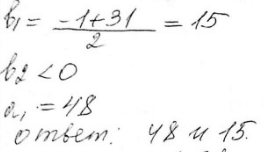 b₁ = (-1+31)/2 = 15
b₂ < 0
a₁ = 48
ответ: 48 и 15.